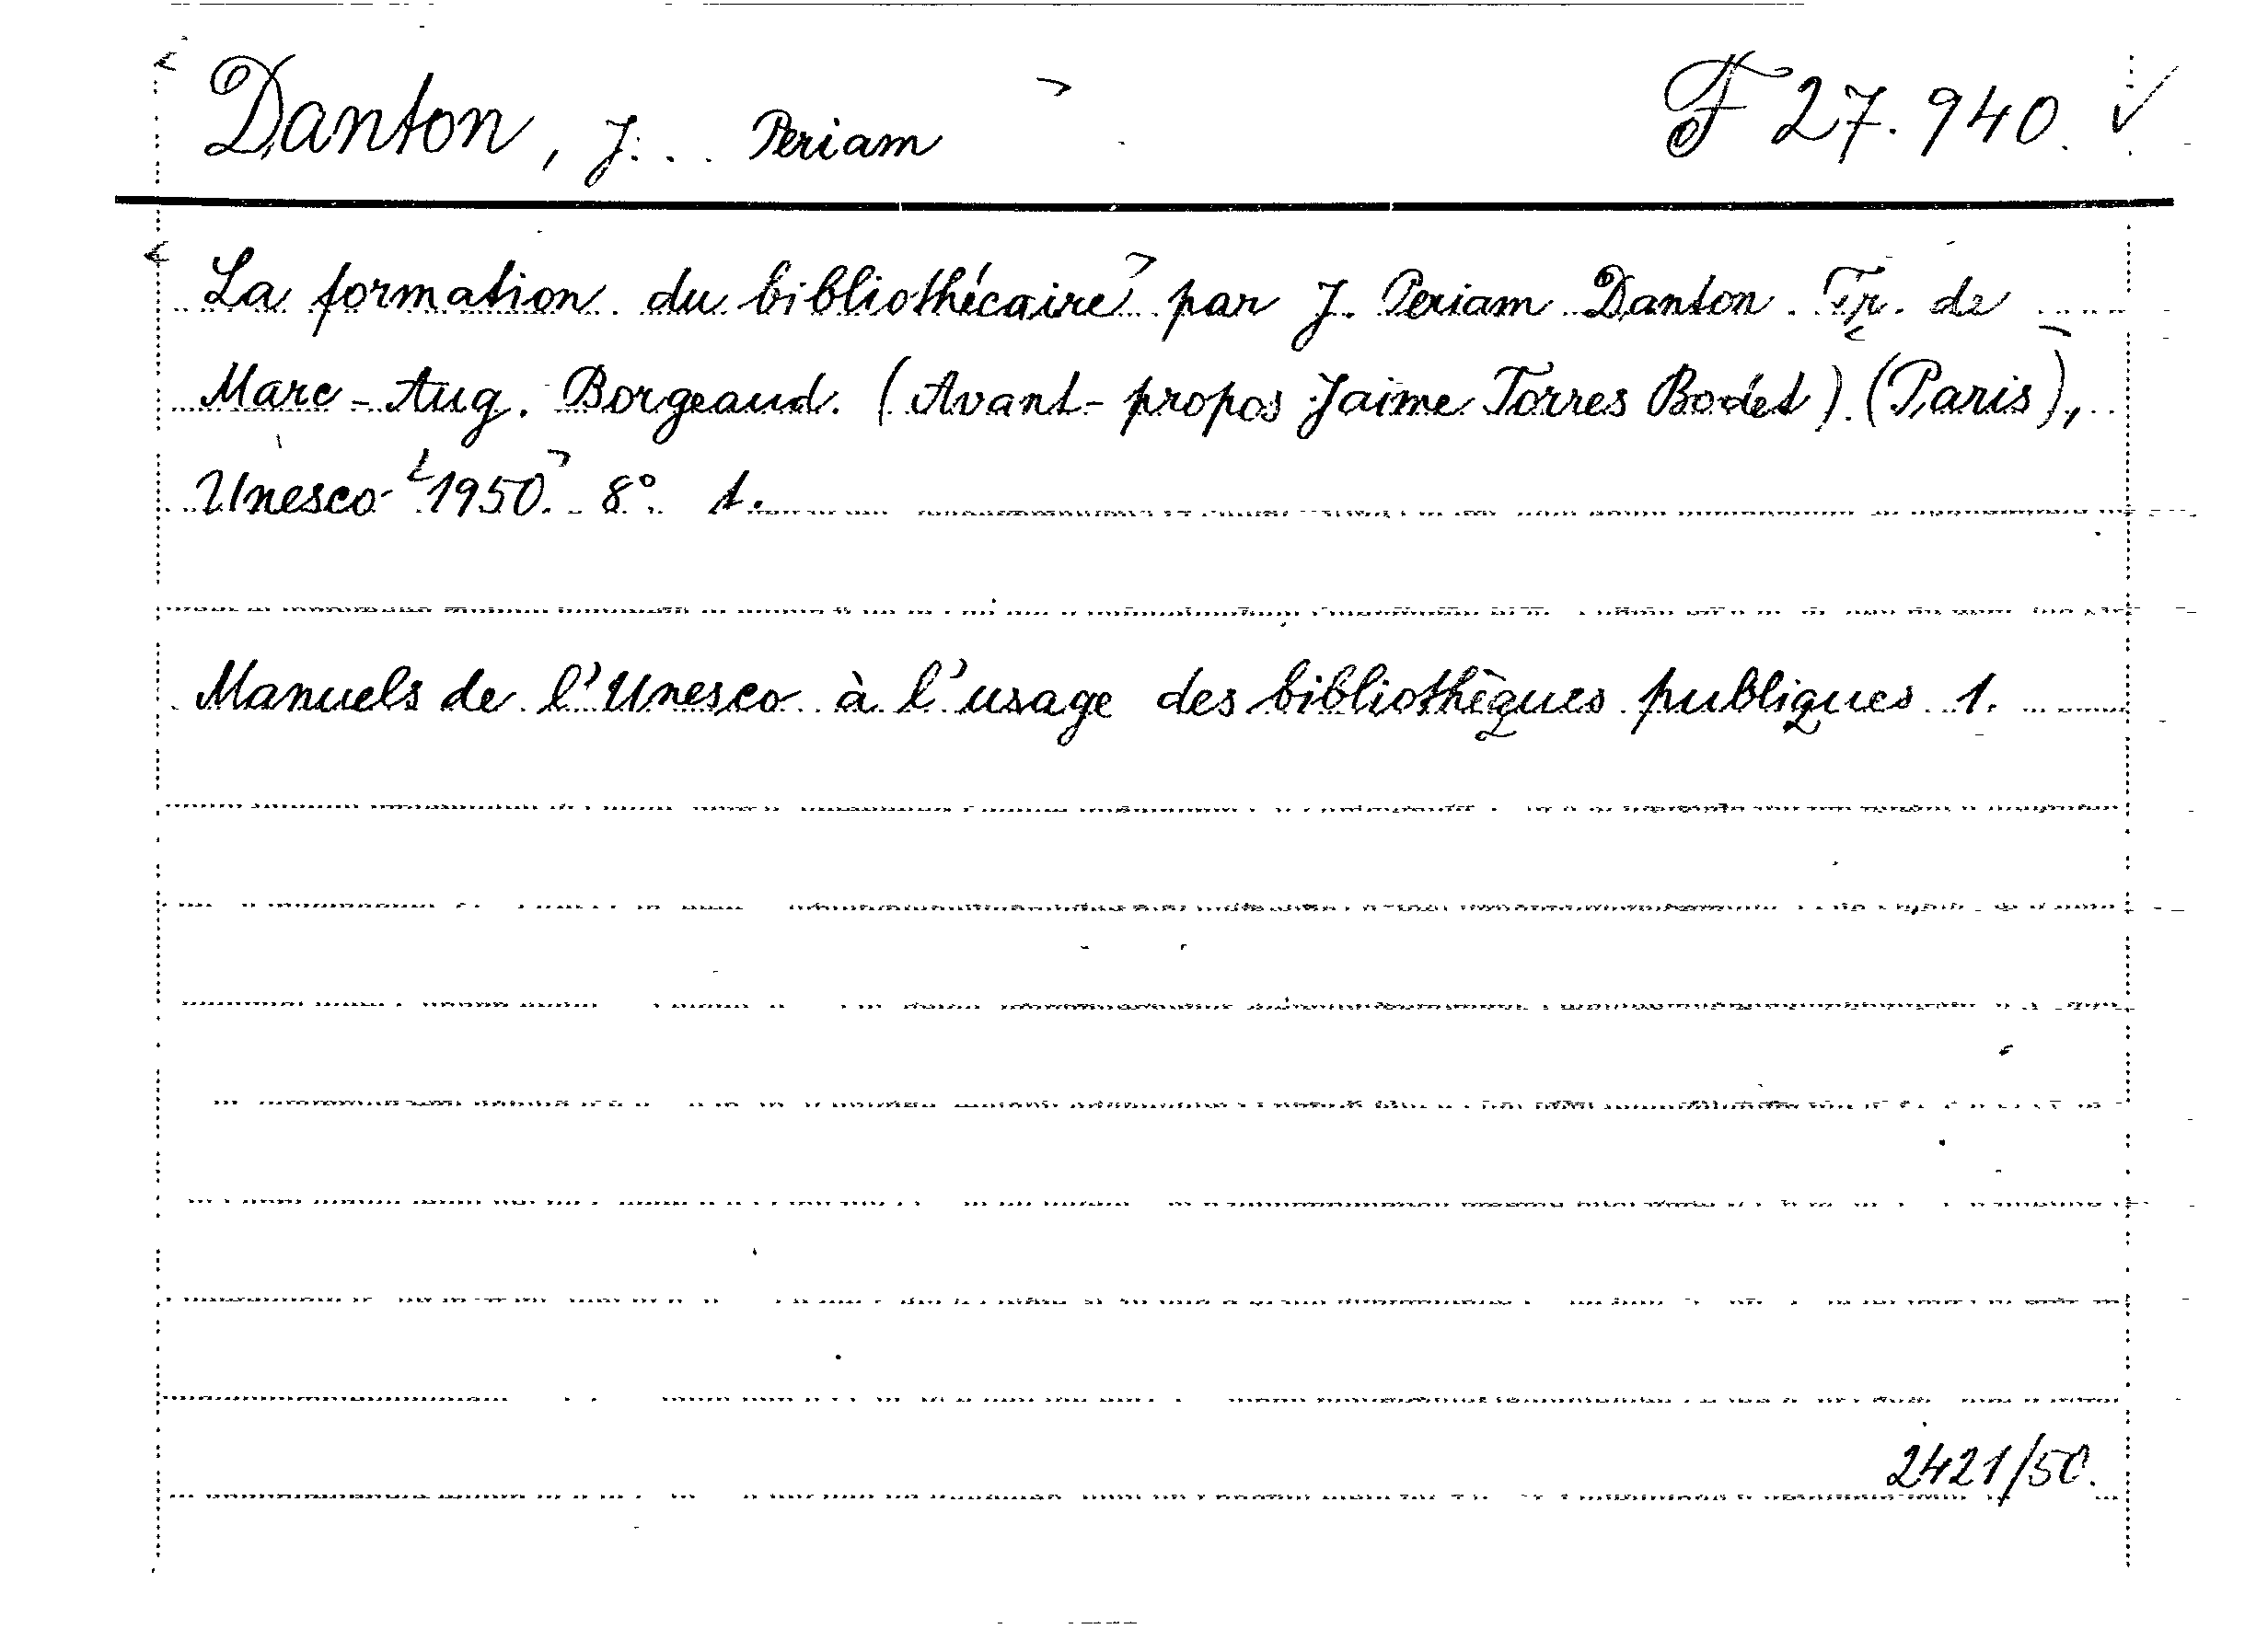 Danton, J... Periam F 27.940. ✓
La formation du bibliothécaire par J. Periam Danton. Tr. de
Marc-Aug. Borgeaud. (Avant-propos Jaime Torres Bodet). (Paris),
Unesco 1950. 8° 1.
Manuels de l'Unesco à l'usage des bibliothèques publiques 1.
2421/50.